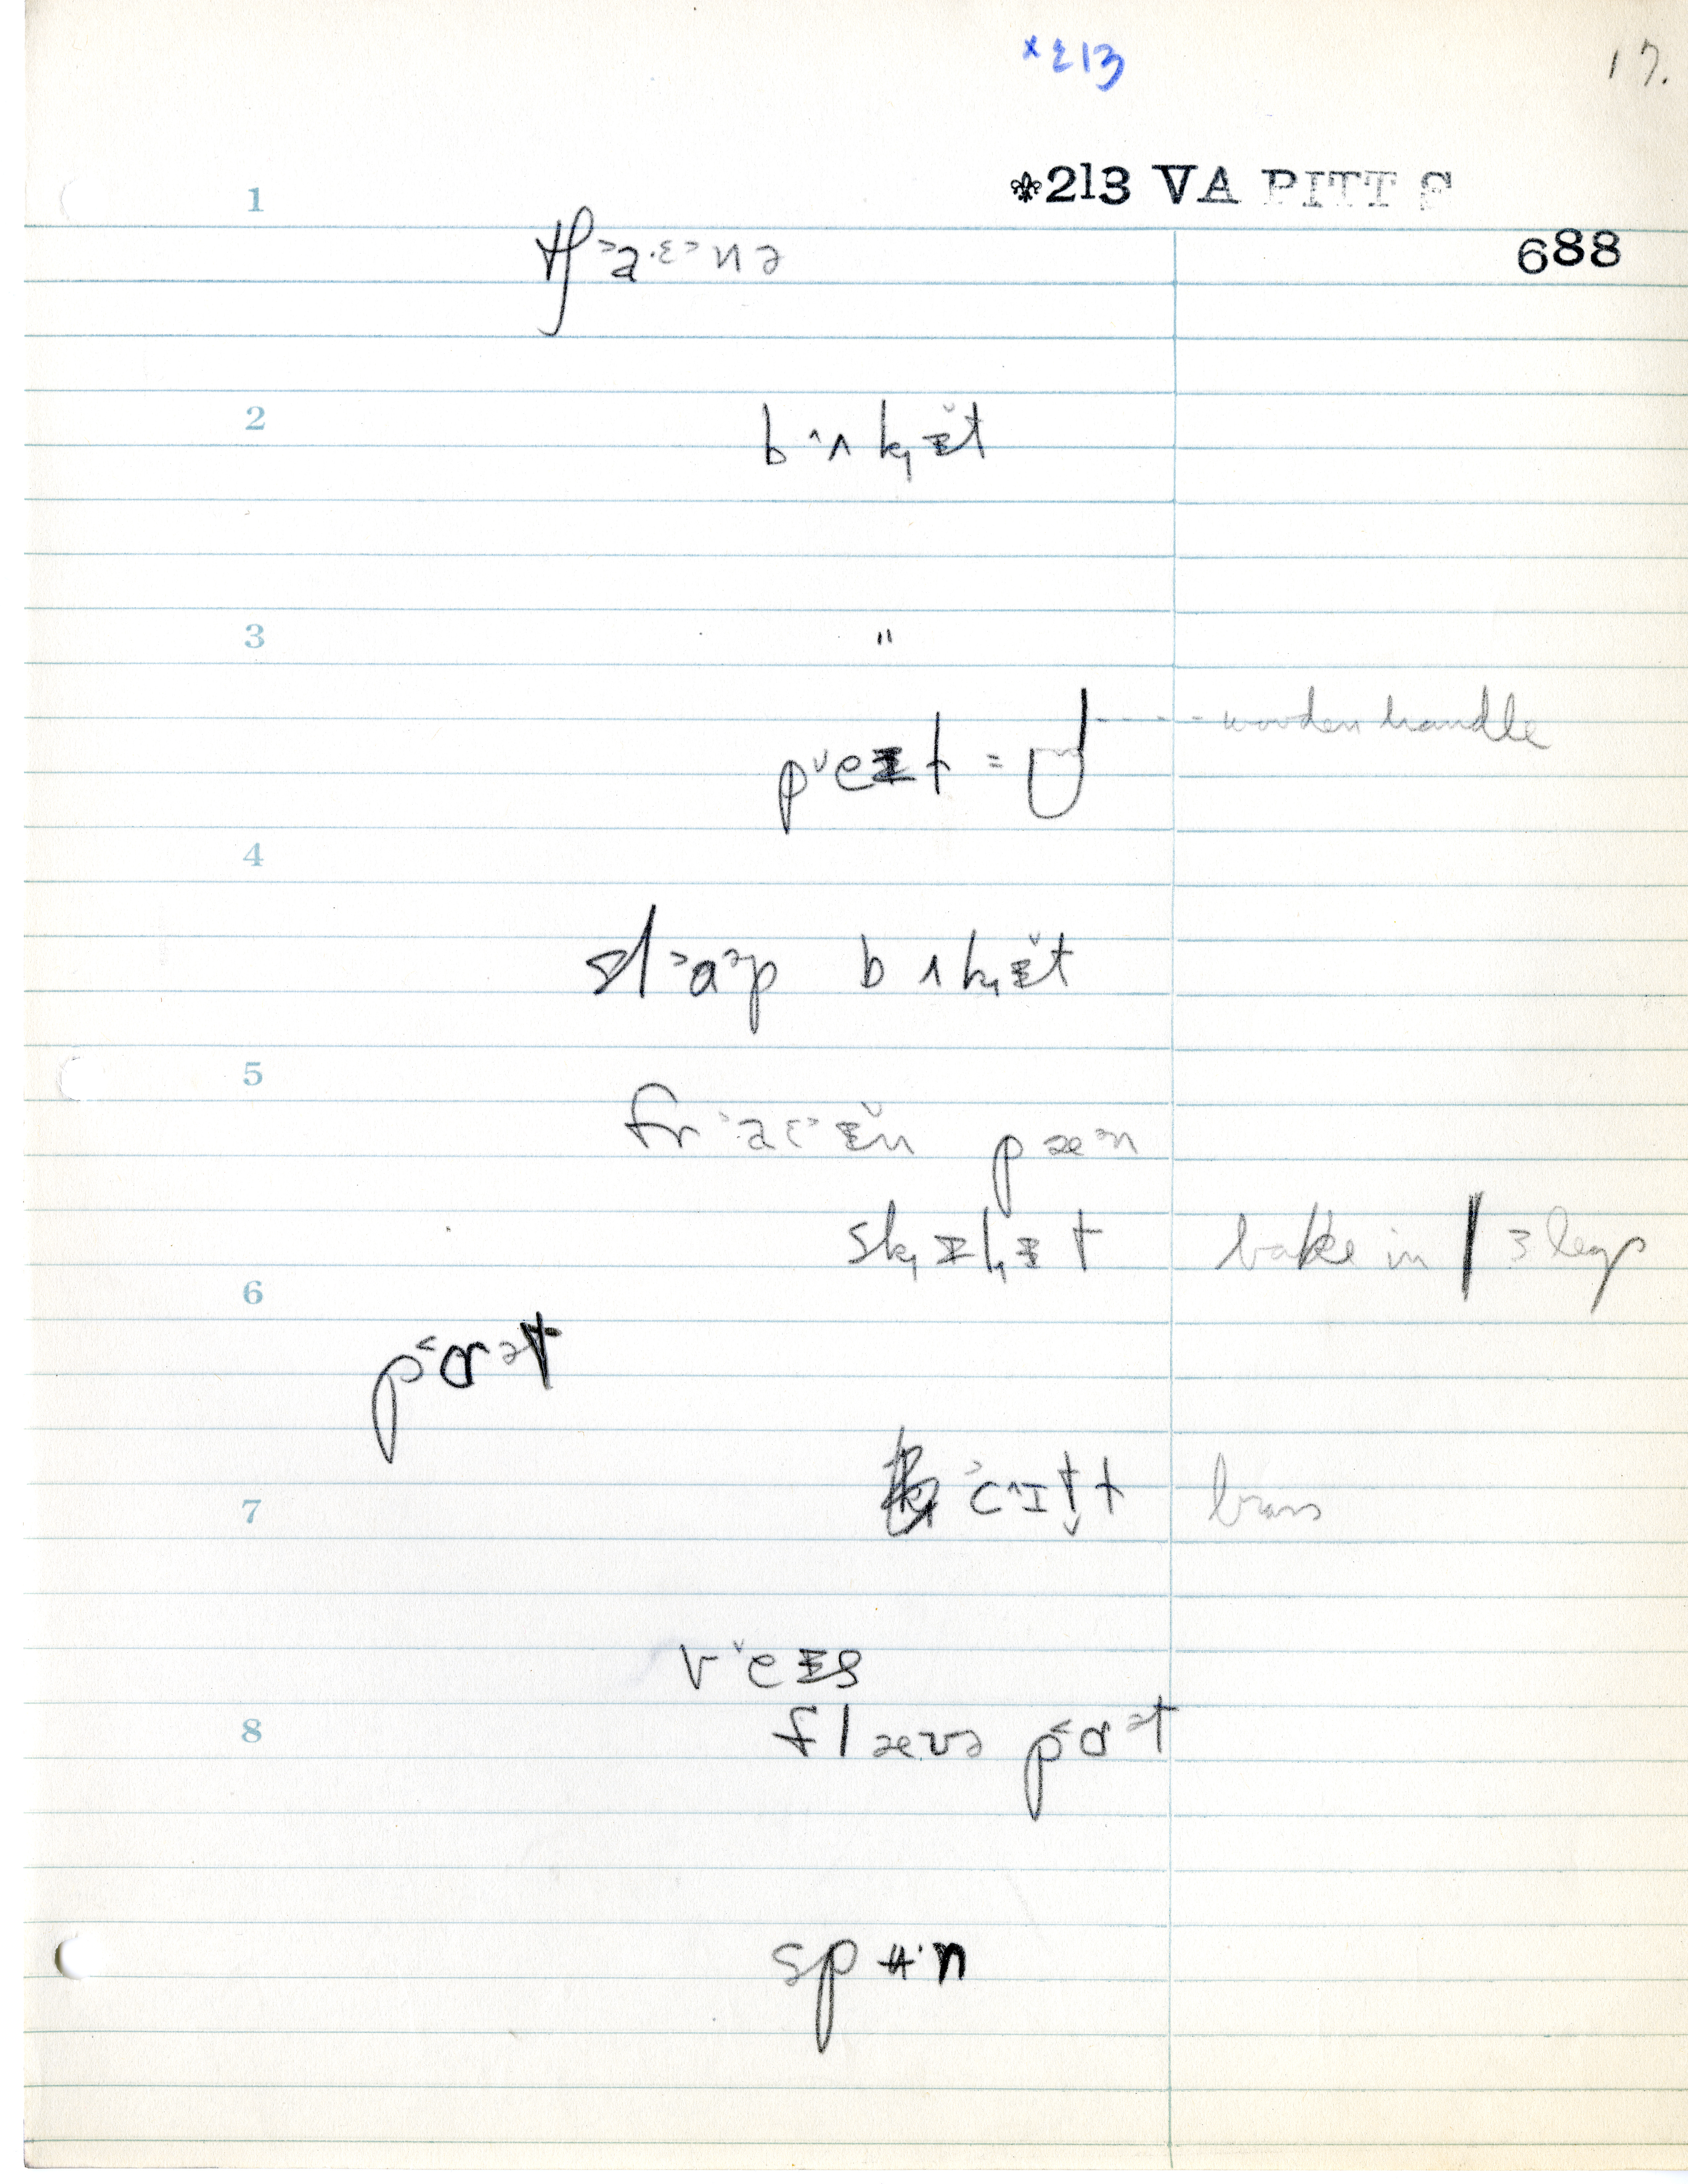 *213
17.
⚜213 VA PITT S
1
688
tʃ˃a·ɛ˃nə
2
b ˄ʌ k̟ ᵻ̆t
3
"
p ˅eᵻt = wooden handle
4
sl˃ɑ˃p bʌk̟ᵻ̆t
5
fr˃aɛ˃ᵻ̆n pæ˃n
sk̟ɪl̟ᵻt bake in | 3 legs
6
p˂ɑ˃t
7
v˅eᵻs
8
flæʊə p˂ɑ˃t
spʉ·n